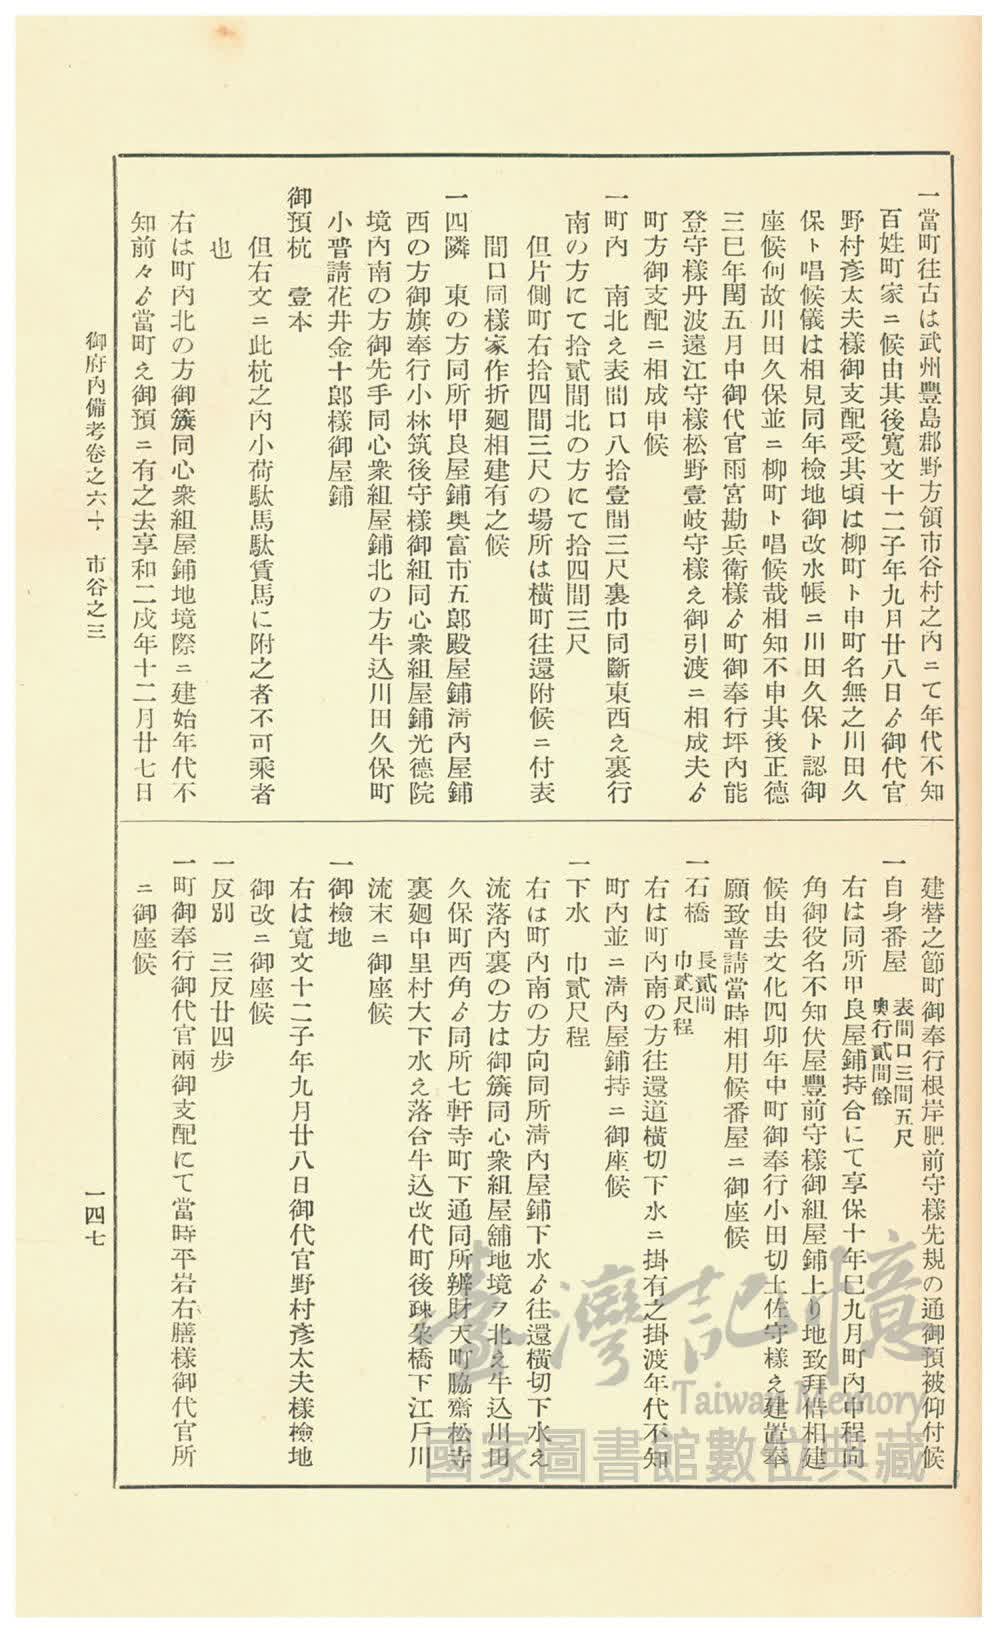 一當町往古は武州豐島郡野方領市谷村之內ニて年代不知
百姓町家ニ候由其後寬文十二子年九月廿八日ゟ御代官
野村彥太夫樣御支配受其頃は柳町ト申町名無之川田久
保ト唱候儀は相見同年檢地御改水帳ニ川田久保ト認御
座候何故川田久保並ニ柳町ト唱候哉相知不申其後正德
三巳年閏五月中御代官雨宮勘兵衛樣ゟ町御奉行坪內能
登守樣丹波遠江守樣松野壹岐守樣え御引渡ニ相成夫ゟ
町方御支配ニ相成申候
一町內　南北え表間口八拾壹間三尺裏巾同斷東西え裏行
南の方にて拾貳間北の方にて拾四間三尺
但片側町右拾四間三尺の場所は橫町往還附候ニ付表
間口同樣家作折廻相建有之候
一四隣　東の方同所甲良屋鋪奧富市五郎殿屋鋪淸內屋鋪
西の方御旗奉行小林筑後守樣御組同心衆組屋鋪光德院
境內南の方御先手同心衆組屋鋪北の方牛込川田久保町
小普請花井金十郎樣御屋鋪
御預杭　壹本
但右文ニ此杭之內小荷駄馬駄賃馬に附之者不可乘者
也
右は町內北の方御籏同心衆組屋鋪地境際ニ建始年代不
知前々ゟ當町え御預ニ有之去享和二戌年十二月廿七日
建替之節町御奉行根岸肥前守樣先規の通御預被仰付候
一自身番屋　表間口三間五尺
奧行貳間餘
右は同所甲良屋鋪持合にて享保十年巳九月町內中程向
角御役名不知伏屋豐前守樣御組屋鋪上り地致拜借相建
候由去文化四卯年中町御奉行小田切土佐守樣え建置奉
願致普請當時相用候番屋ニ御座候
一石橋　長貳間
巾貳尺程
右は町內南の方往還道橫切下水ニ掛有之掛渡年代不知
町內並ニ淸內屋鋪持ニ御座候
一下水　巾貳尺程
右は町內南の方向同所淸內屋鋪下水ゟ往還橫切下水え
流落內裏の方は御籏同心衆組屋舖地境ヲ北え牛込川田
久保町西角ゟ同所七軒寺町下通同所辨財天町脇齋松寺
裏廻中里村大下水え落合牛込改代町後疎朶橋下江戶川
流末ニ御座候
一御檢地
右は寬文十二子年九月廿八日御代官野村彥太夫樣檢地
御改ニ御座候
一反別　三反廿四步
一町御奉行御代官兩御支配にて當時平岩右膳樣御代官所
ニ御座候
御府內備考卷之六十　市谷之三
一四七
臺灣記憶
Taiwan Memory
國家圖書館數位典藏